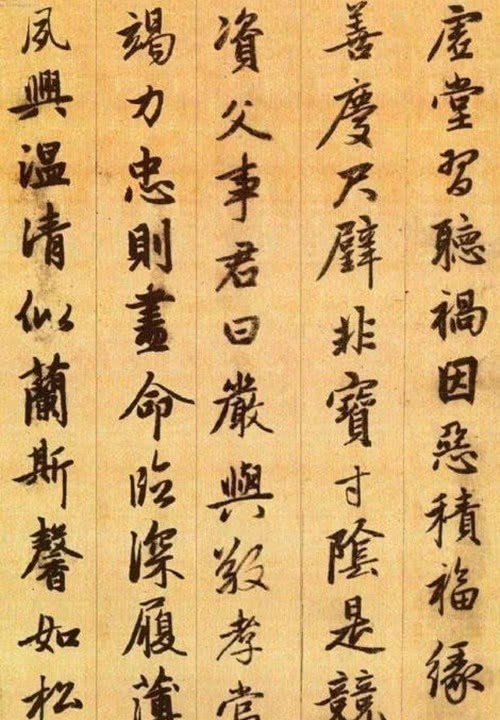 虛堂習聽禍因惡積福緣
善慶尺璧非寶寸陰是競
資父事君曰嚴與敬孝當
竭力忠則盡命臨深履薄
夙興温清似蘭斯馨如松